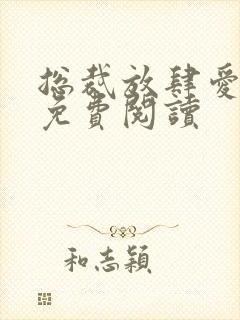 总裁放肆爱
免費閱讀
和志穎